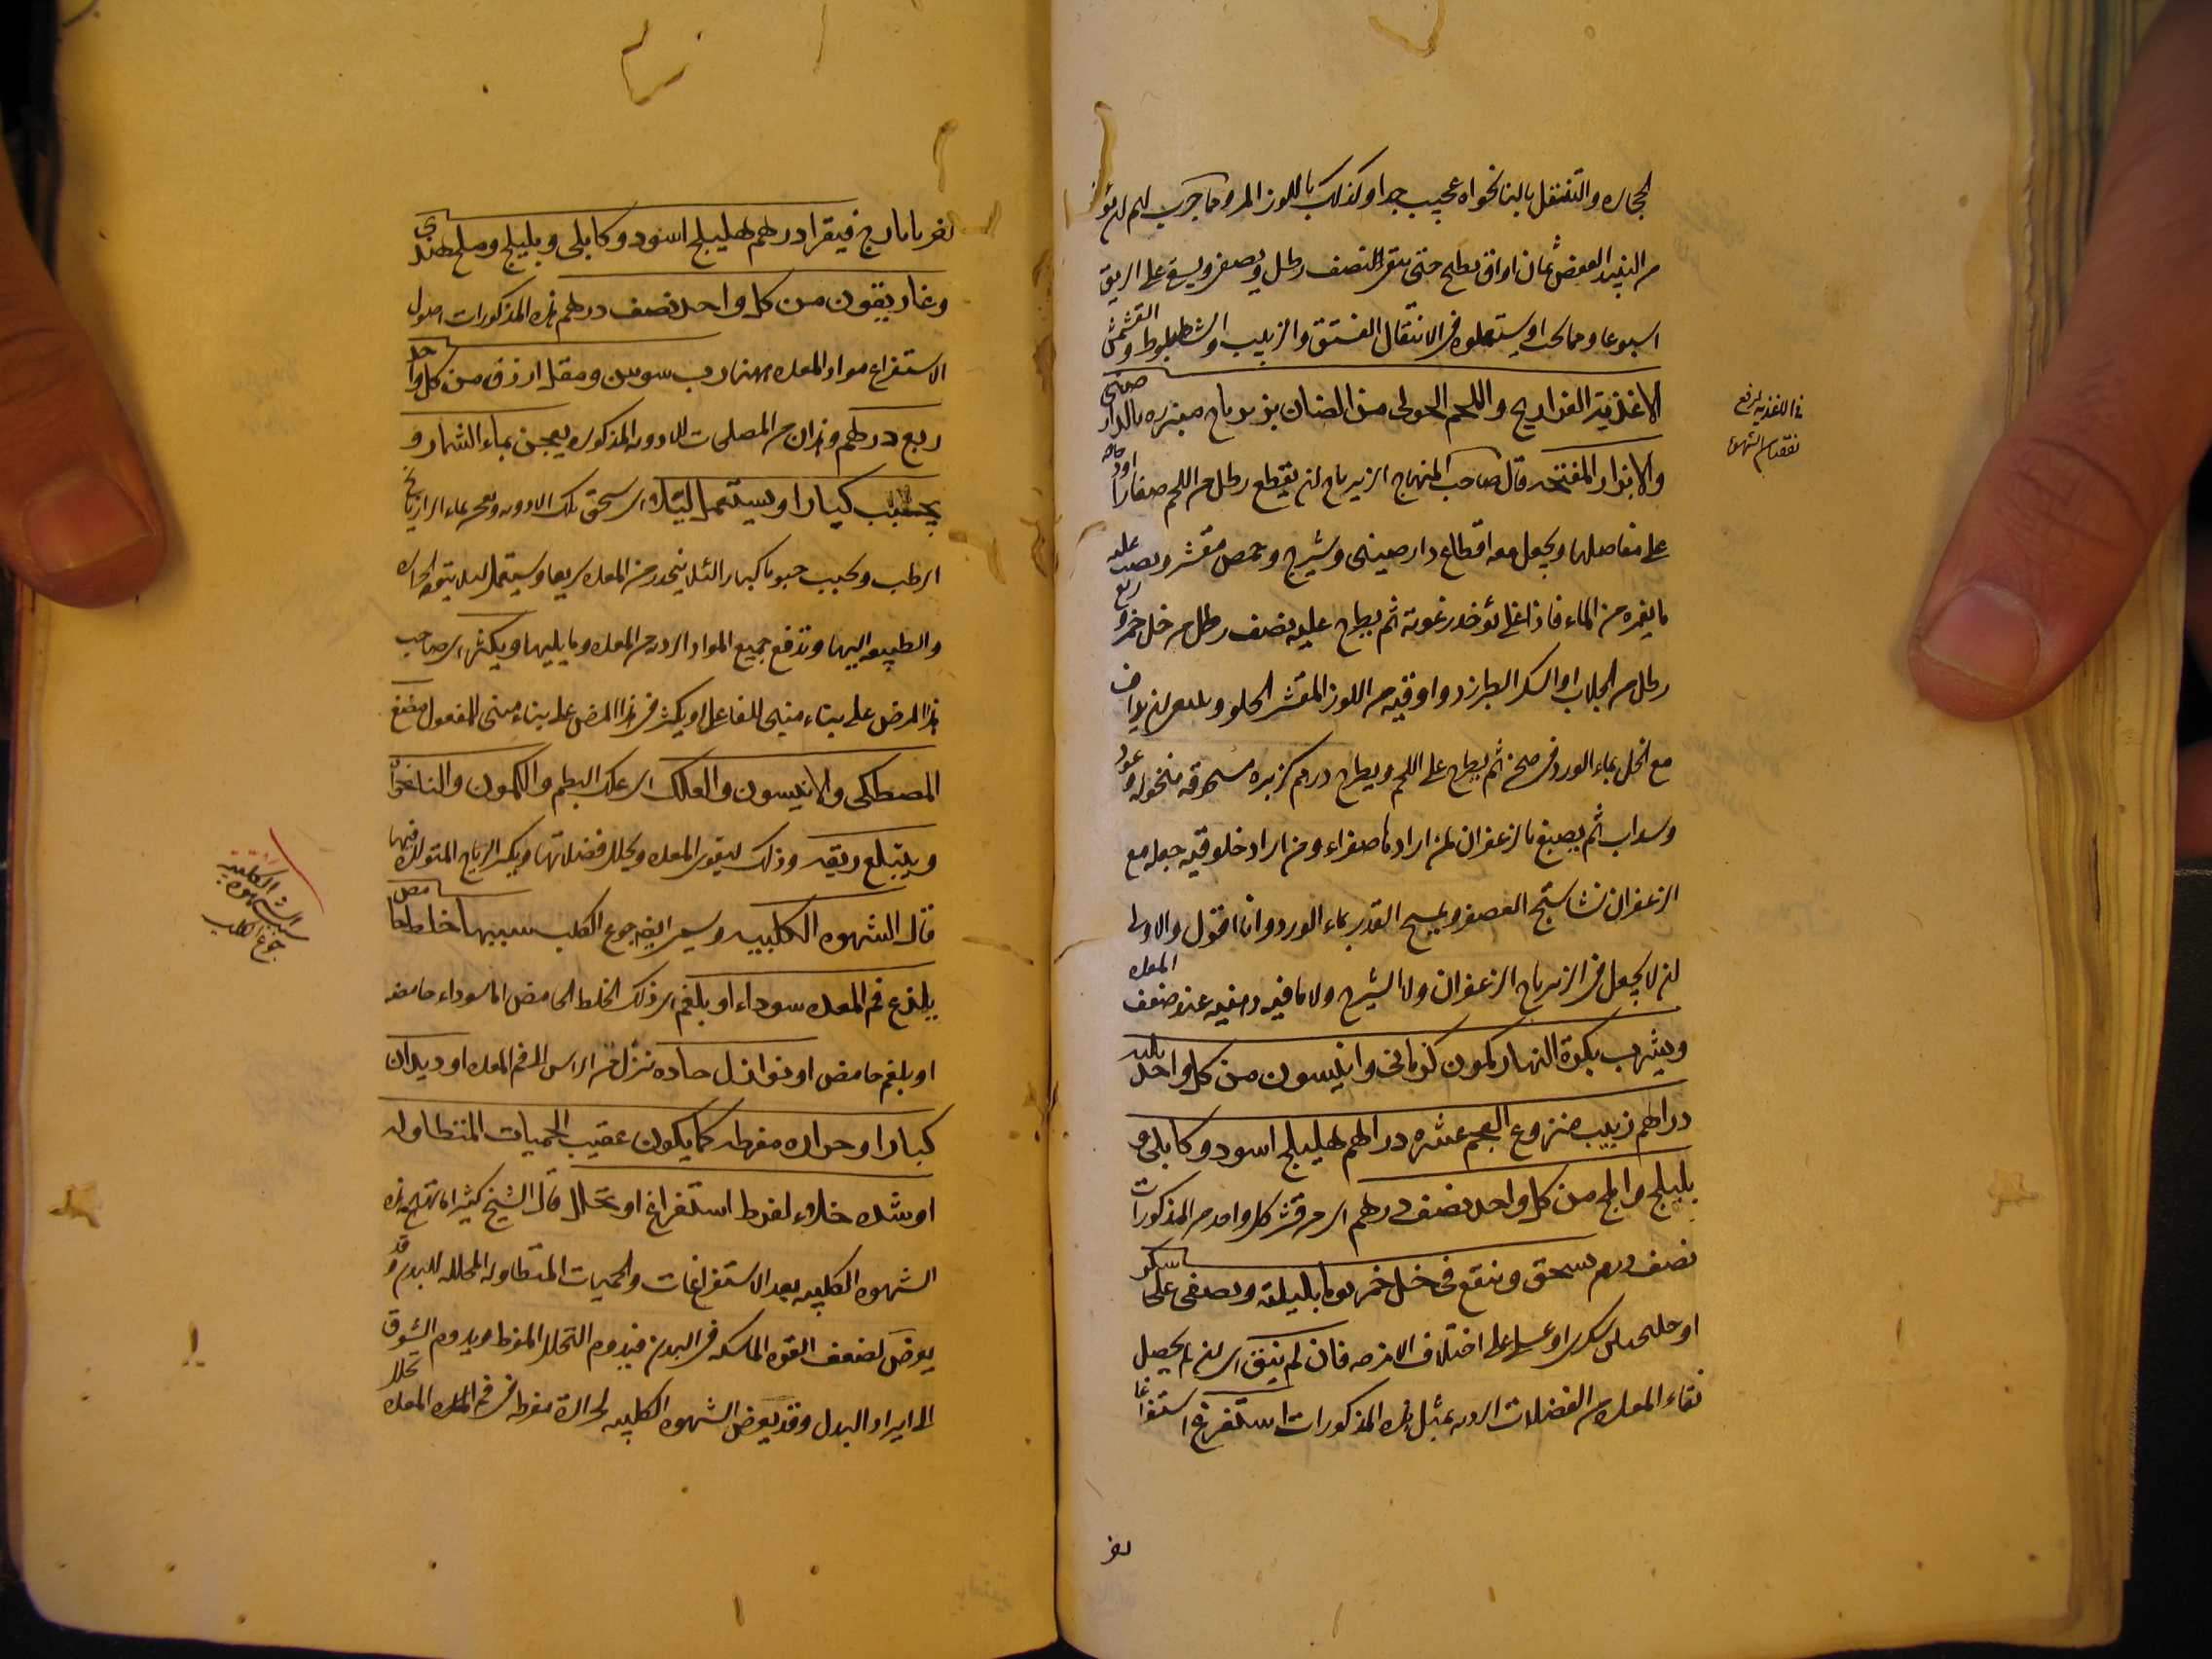 الحجاره والتنقل بالنانخواه عجيب جدا وكذلك باللوز المر ومما جرب لهم ان يؤخذ
من النبيذ العفص ثمان اواق يطبخ حتى يبقى النصف رطل ويصفى ويسقى على الريق
اسبوعا ومما يجب ان يستعملوه فى الانتقال الفستق والزبيب والشاهبلوط والمشمش
الاغذيه الفراريج واللحم الحولى من الضان بزيرباج مبزره بالدارصينى
والابزار المفتحه قال صاحب المنهاج الزيرباج ان يقطع رطل من اللحم صغارا او دجاجه
على مفاصلها ويجعل معه اقطاع دارصينى وشيرج وحمص مقشر ويصب عليه
ما يغمره من الماء فاذا غلى تؤخذ رغوته ثم يطرح عليه نصف رطل من خل خمر وربع
رطل من الجلاب او السكر الطبرزد واوقيه من اللوز المقشر الحلو يداف
مع الخل بماء الورد ثم يطرح على اللحم ويطرح درهم كزبره مسحوقه منخوله وعود
وسداب ثم يصبغ بالزعفران لمن ارادها صفراء ومن اراد خلوقيه جعله مع
الزعفران نشاستج العصفر ويمسح القدر بماء الورد وانا اقول والاولى
ان لا يجعل فى الزيرباج الزعفران ولا الشيرج ولا ما فيه دهنيه عند ضعف المعده
ويشرب بكرة النهار كمون كرمانى وانيسون من كل واحد ثلثه
دراهم زبيب منزوع العجم عشره دراهم هليلج اسود وكابلى و
بليلج واملج من كل واحد نصف درهم اى من قشر كل واحد من المذكورات
نصف درهم يسحق وينقع فى خل خمر يوما بليلته ويصفى على سكر
او جلنجبين سكرى او عسلى على اختلاف الامزجه فان لم ينق اى ان لم يحصل
نقاء المعده من الفضلات الرديه بمثل هذه المذكورات استفرغ استفراغا
فى الاغذيه لرفع
نقصان الشهوه
بايارج فيقرا درهم هليلج اسود وكابلى وبليلج وملح هندى
وغاريقون من كل واحد نصف درهم هذه المذكورات اصول
الاستفراغ مواد المعده رب سوس ومقل ازرق من كل واحد
ربع درهم وهذان من المصلحات للادويه المذكوره يعجن بماء الشمار و
يحبب كبارا ويستعمل ليلا اى يسحق تلك الادويه ويعجن بماء الرازيانج
الرطب ويحبب حبوبا كبارا لئلا ينحدر من المعده سريعا ويستعمل ليلا الحراره
والطبيعه اليها وتدفع جميع المواد الرديه من المعده وما يليها ويكثر اى صاحب
هذا المرض على بناء مبنى للفاعل او يكثر فى هذا المرض على بناء مبنى للمفعول مضغ
المصطكى والانيسون والعلك اى علك البطم والكمون والنانخواه
ويبتلع ريقه وذلك ليقوى المعده ويحلل فضلاتها ويكسر الرياح المتولده فيها
قال الشهوه الكلبيه ويسمى ايضا جوع الكلب سببها خلط حامض
يلذع فم المعده سوداء او بلغم اى ذلك الخلط الحامض اما سوداء حامضه
او بلغم حامض او نوازل حاده تنزل من الراس الى فم المعده او ديدان
كبار او حراره مفرطه كما يكون عقيب الحميات المتطاوله
او شده خلاء لفرط استفراغ او تحلل قال الشيخ كثيرا ما تهيج هذه
الشهوه الكلبيه بعد الاستفراغات والحميات المتطاوله المحلله للبدن وقد
يعرض لضعف القوه الماسكه فى البدن فيدوم التحلل المفرط ويدوم الشوق
الى ايراد البدل وقد يعرض الشهوه الكلبيه لحرارة مفرطه فى فم المعده تحلل
الشهوة الكلبية
جوع الكلب